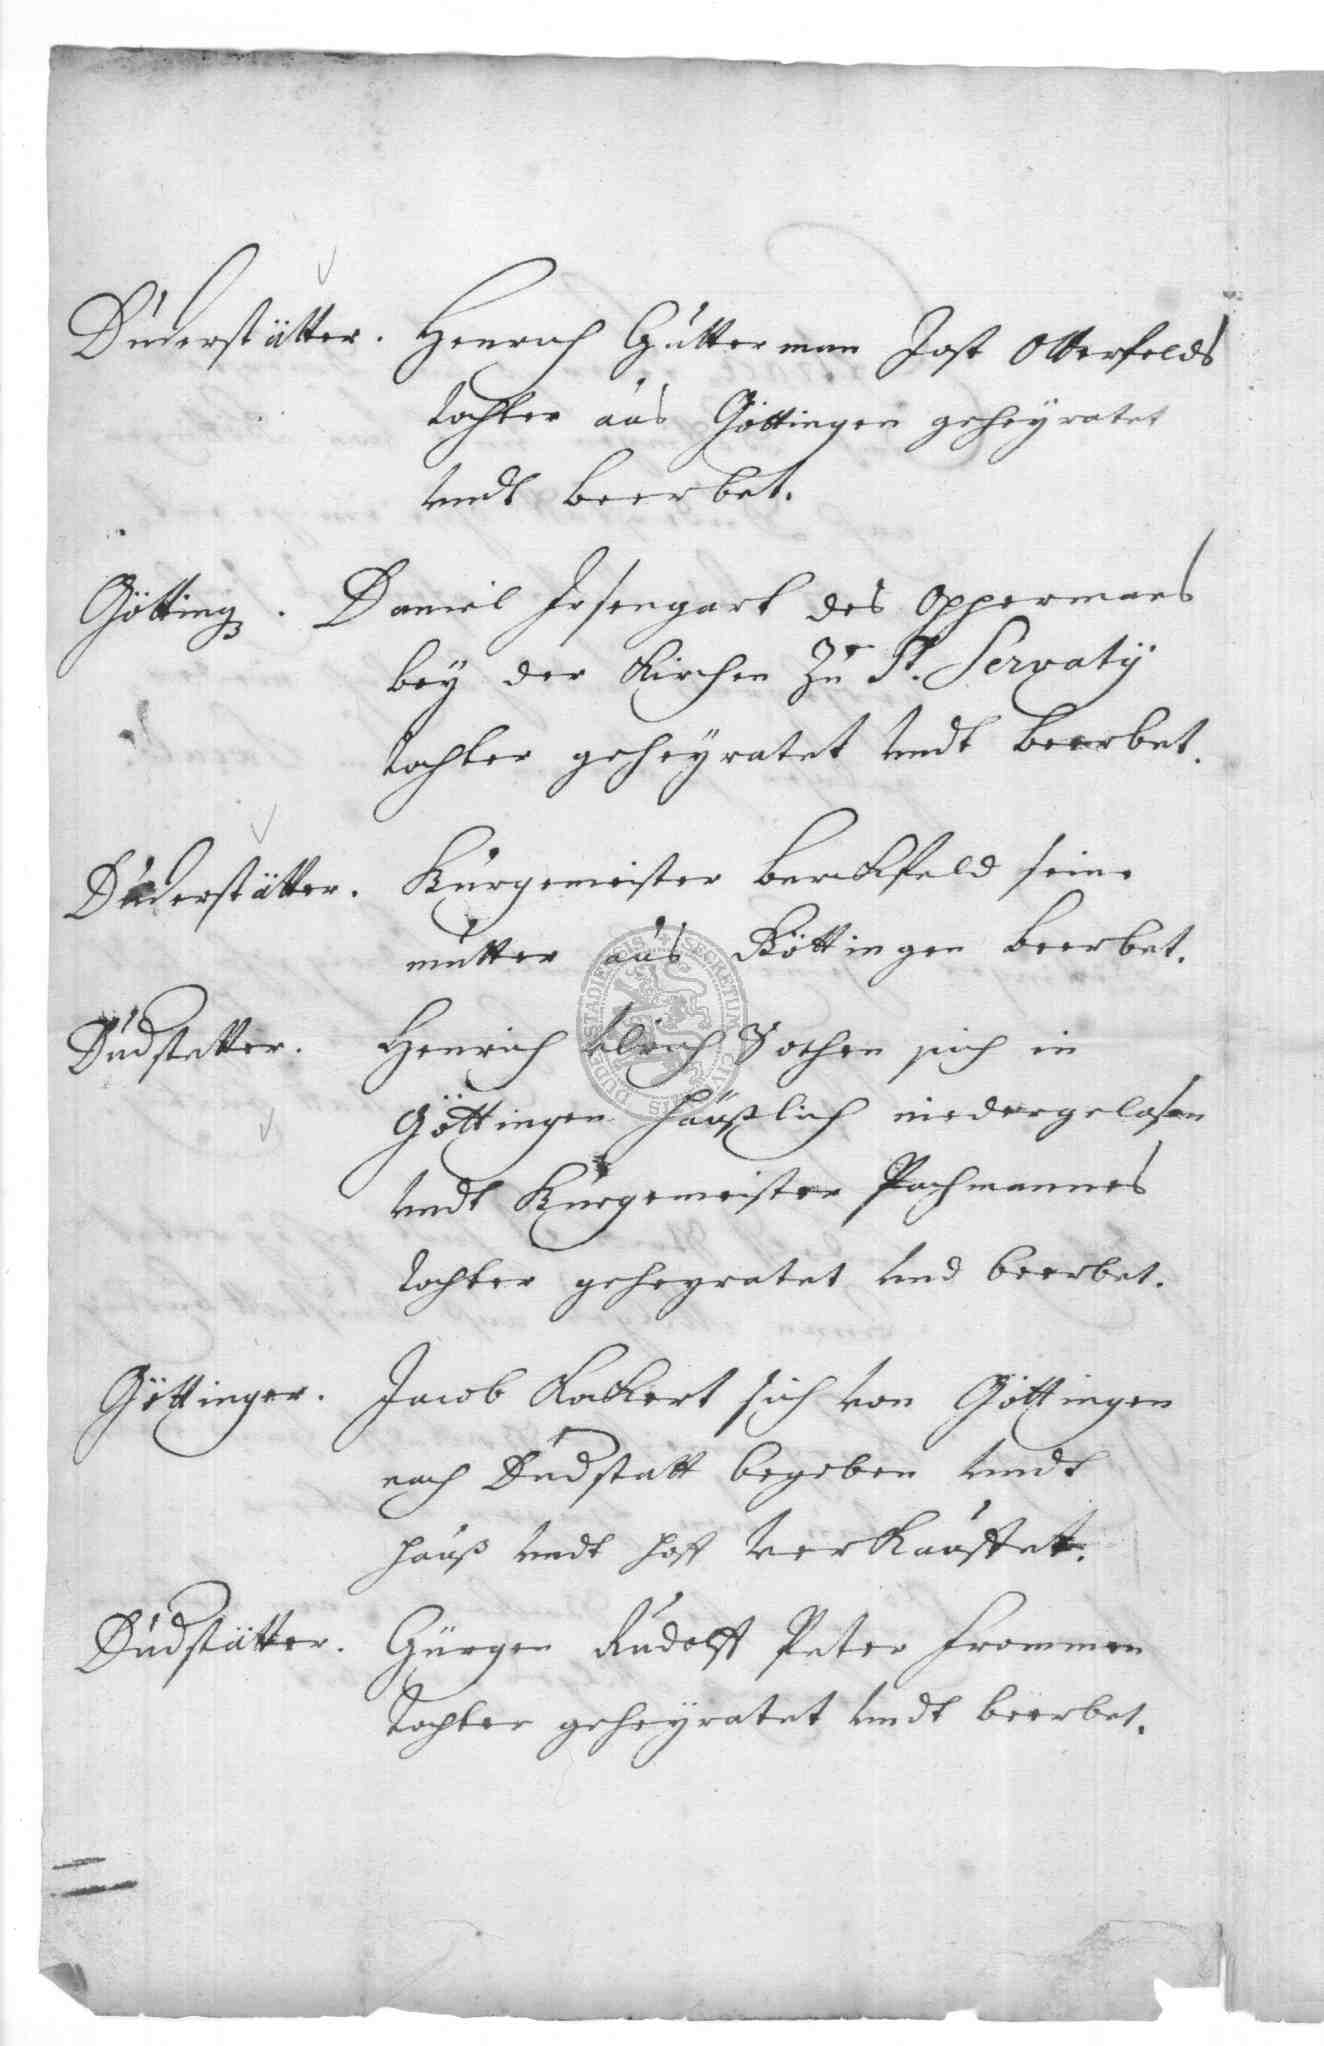 Duderstätter. Henrich Gütterman Jost Otterfelds
tochter aus Göttingen geheyratet
undt beerbet.
Götting. Daniel Jesengart des Oppermans
bey der Kirchen zu St. Servatij
tochter geheyratet undt beerbet.
Duderstätter. Burgemeister Berckfeld seine
mutter aus Göttingen beerbet.
Dudstetter. Henrich Ulrich sich in
Göttingen häußlich niedergelasen
undt Burgemeister Pachmannes
tochter geheyratet und beerbet.
Göttinger. Jacob Lackert sich von Göttingen
nach Dudstatt begeben undt
hauß undt hoff verkauffet.
Dudstätter. Gürgen Rudolff Peter Frommen
tochter geheyratet undt beerbet.
SECRETUM CIVITATIS DUDERSTADIENSIS